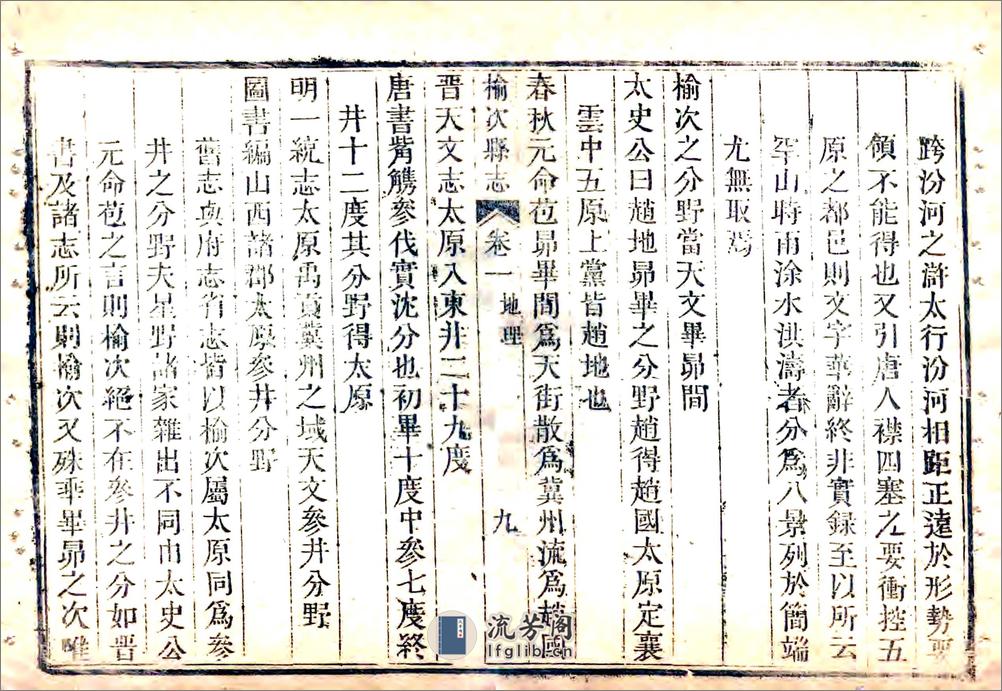 跨汾河之滸太行汾河相距正遠於形勢要
領不能得也又引唐人襟四塞之要衝控五
原之都邑則文字華辭終非實録至以所云
罕山時雨涂水洪濤者分為八景列於簡端
尤無取焉
榆次之分野當天文畢昴間
太史公曰趙地昴畢之分野趙得趙國太原定襄
雲中五原上黨皆趙地也
春秋元命苞昴畢間為天街散為冀州流為趙國
榆次縣志 卷一 地理 九
晉天文志太原入東井二十九度
唐書觜觹參伐實沈分也初畢十度中參七度終
井十二度其分野得太原
明一統志太原禹貢冀州之域天文參井分野
圖書編山西諸郡太原參井分野
舊志與府志省志皆以榆次屬太原同為參
井之分野夫星野諸家雜出不同由太史公
元命苞之言則榆次絕不在參井之分如晉
書及諸志所云則榆次又殊乖畢昴之次唯
流芳閣
lfglib.cn